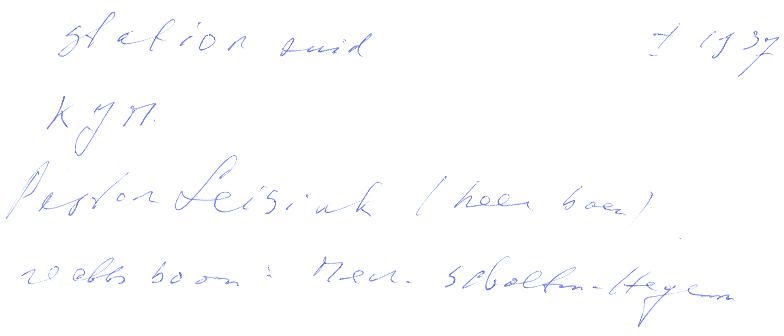 Station zuid ± 1937
K J M.
Pastor Leisink (heer boer)
Mevr. Scholten-Hegem